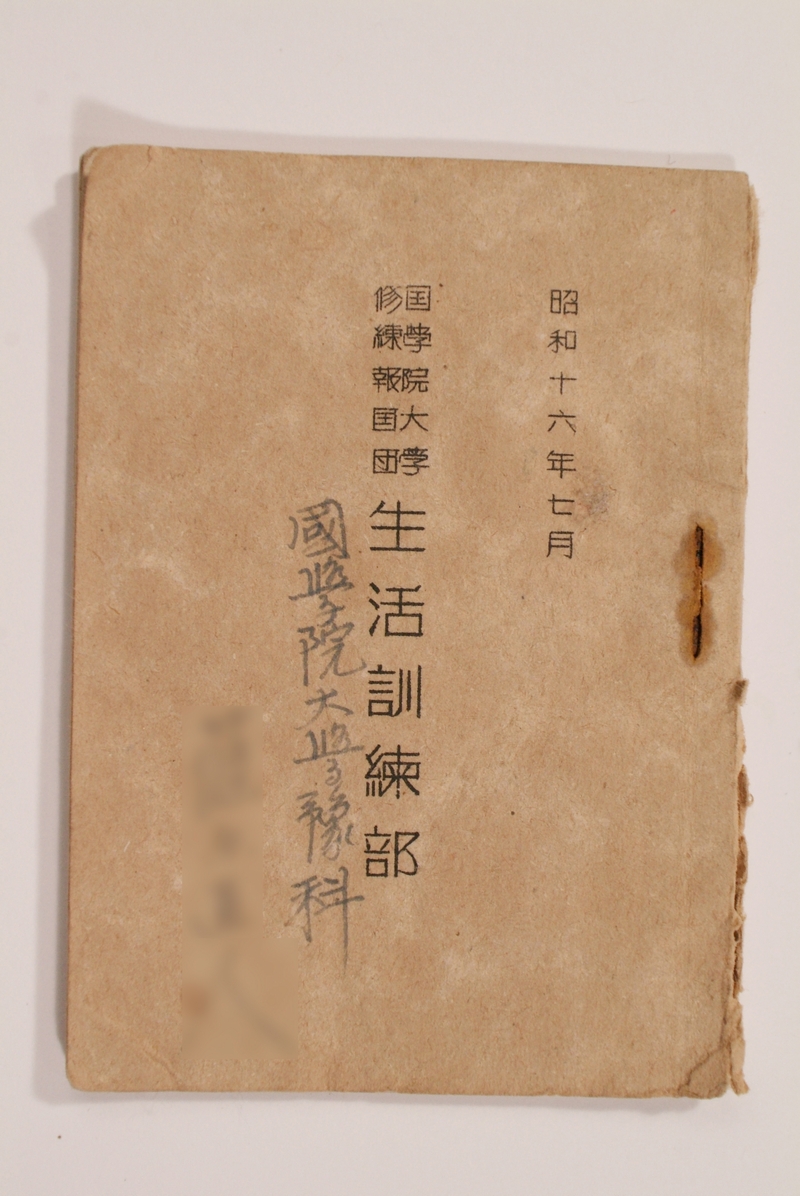 昭和十六年七月
国学院大学
修練報国団
生活訓練部
國學院大學豫科